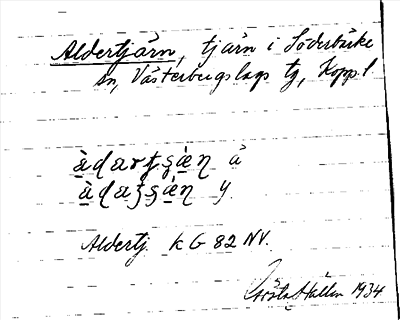 Aldertjärn, tjärn i Söderbärke
sn, Västerbergslags tg, Kopp. l
àdarţşæ̀ŋ ä
àdaţşæ̀ŋ y.
Aldertj. KG 82 NV.
Gösta Hallén 1934